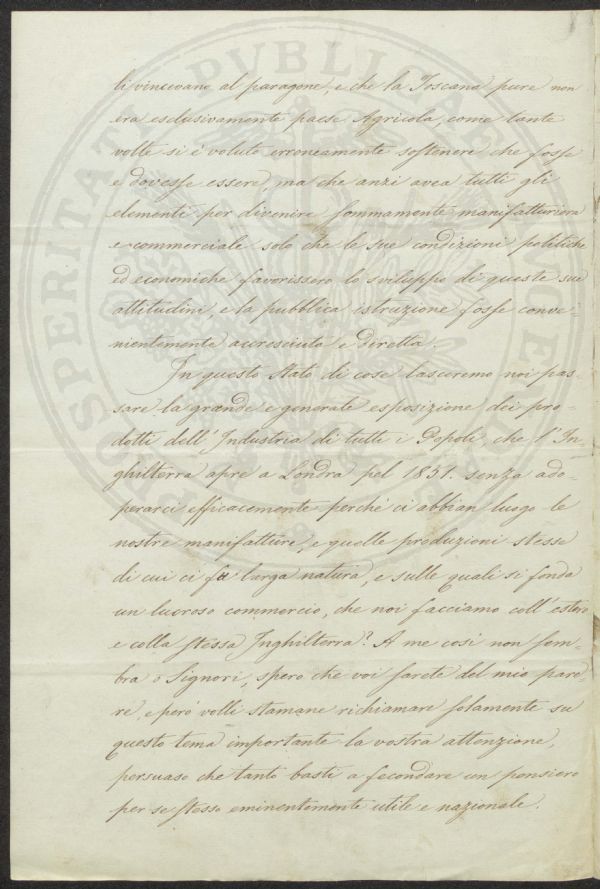 li vincevano al paragone, e che la Toscana pure non
era esclusivamente paese Agricola, come tante
volte si è voluto erroneamente sostenere che fosse
e dovesse essere, ma che anzi avea tutti gli
elementi per divenire sommamente manifatturiera
e commerciale solo che le sue condizioni politiche
ed economiche favorissero lo sviluppo di queste sue
attitudini, e la pubblica istruzione fosse conve-
nientemente accresciuta e diretta.
In questo stato di cose lasceremo noi pas-
sare la grande e generale esposizione dei pro-
dotti dell'Industria di tutti i Popoli che l'In-
ghilterra apre a Londra pel 1851. senza ado-
perarci efficacemente perchè ci abbian luogo le
nostre manifatture, e quelle produzioni stesse
di cui ci fa larga natura, e sulle quali si fonda
un lucroso commercio, che noi facciamo coll'estero
e colla stessa Inghilterra? A me così non sem-
bra o Signori, spero che voi sarete del mio pare-
re, e però volli stamane richiamare solamente su
questo tema importante la vostra attenzione,
persuaso che tanto basti a fecondare un pensiero
per se stesso eminentemente utile e nazionale.
PROSPERITATI PVBLICAE AVGENDAE